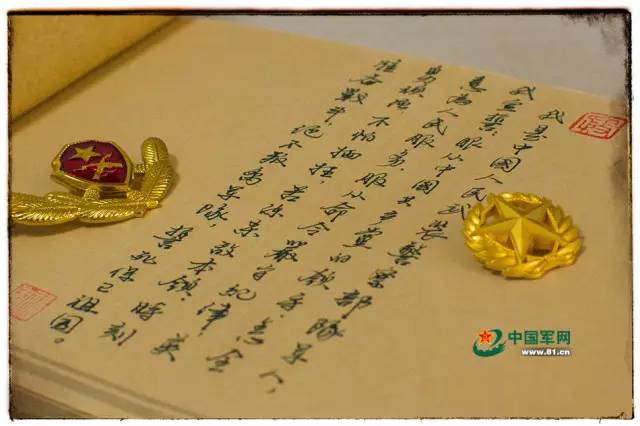 我是中國人民武裝警察部隊軍人,
我宣誓:服从中國共产党的領导,全心全
意为人民服务,服从命令,嚴守纪律,英
勇顽强,不怕牺牲,苦练杀敌本領,時刻
准备戰斗,绝不叛离军隊,誓死保卫祖國。
中国军网
www.81.cn